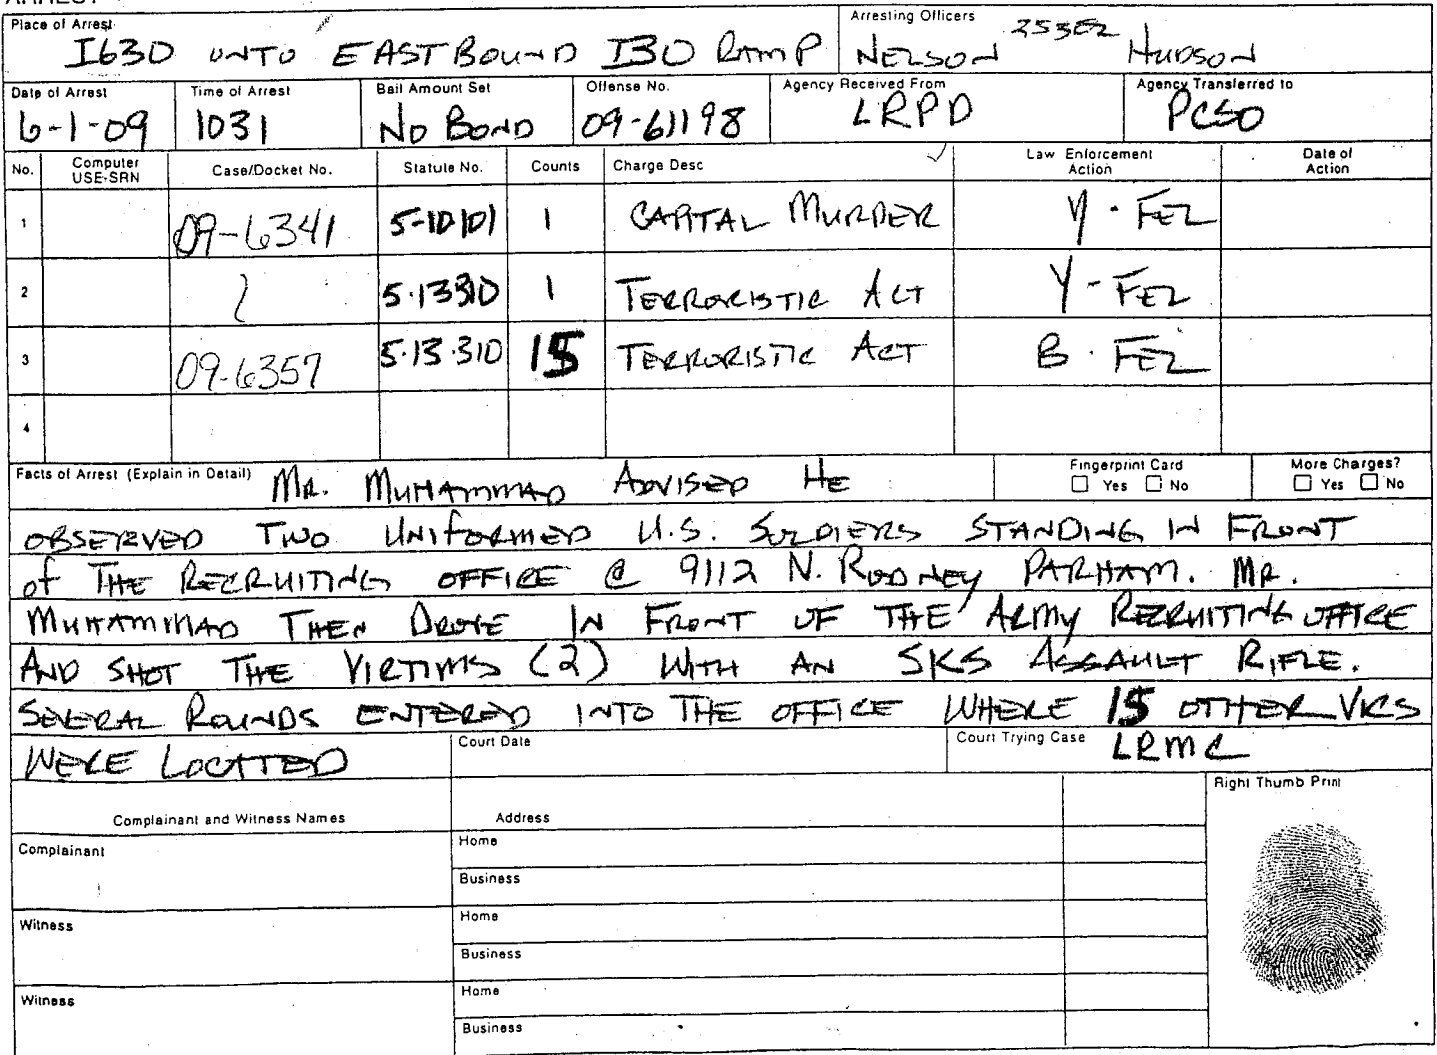 ARREST
Place of Arrest Arresting Officers
I630 UNTO EASTBOUND I30 RAMP NELSON 25382 HUDSON
Date of Arrest Time of Arrest Bail Amount Set Offense No. Agency Received From Agency Transferred to
6-1-09 1031 NO BOND 09-61198 LRPD PCSO
No. Computer USE-SRN Case/Docket No. Statute No. Counts Charge Desc Law Enforcement Action Date of Action
1 09-6341 5-10101 1 CAPITAL MURDER Y - FEL
2 5.13310 1 TERRORISTIC ACT Y - FEL
3 09-6357 5.13.310 15 TERRORISTIC ACT B. FEL
4
Facts of Arrest (Explain in Detail) MR. MUHAMMAD ADVISED HE Fingerprint Card Yes No More Charges? Yes No
OBSERVED TWO UNIFORMED U.S. SOLDIERS STANDING IN FRONT
of THE RECRUITING OFFICE @ 9112 N. RODNEY PARHAM. MR.
MUHAMMAD THEN DROVE IN FRONT OF THE ARMY RECRUITING OFFICE
AND SHOT THE VICTIMS (2) WITH AN SKS ASSAULT RIFLE.
SEVERAL ROUNDS ENTERED INTO THE OFFICE WHERE 15 OTHER VICS
WERE LOCATED Court Date Court Trying Case LRMC
Right Thumb Print
Complainant and Witness Names Address
Complainant Home
Business
Witness Home
Business
Witness Home
Business